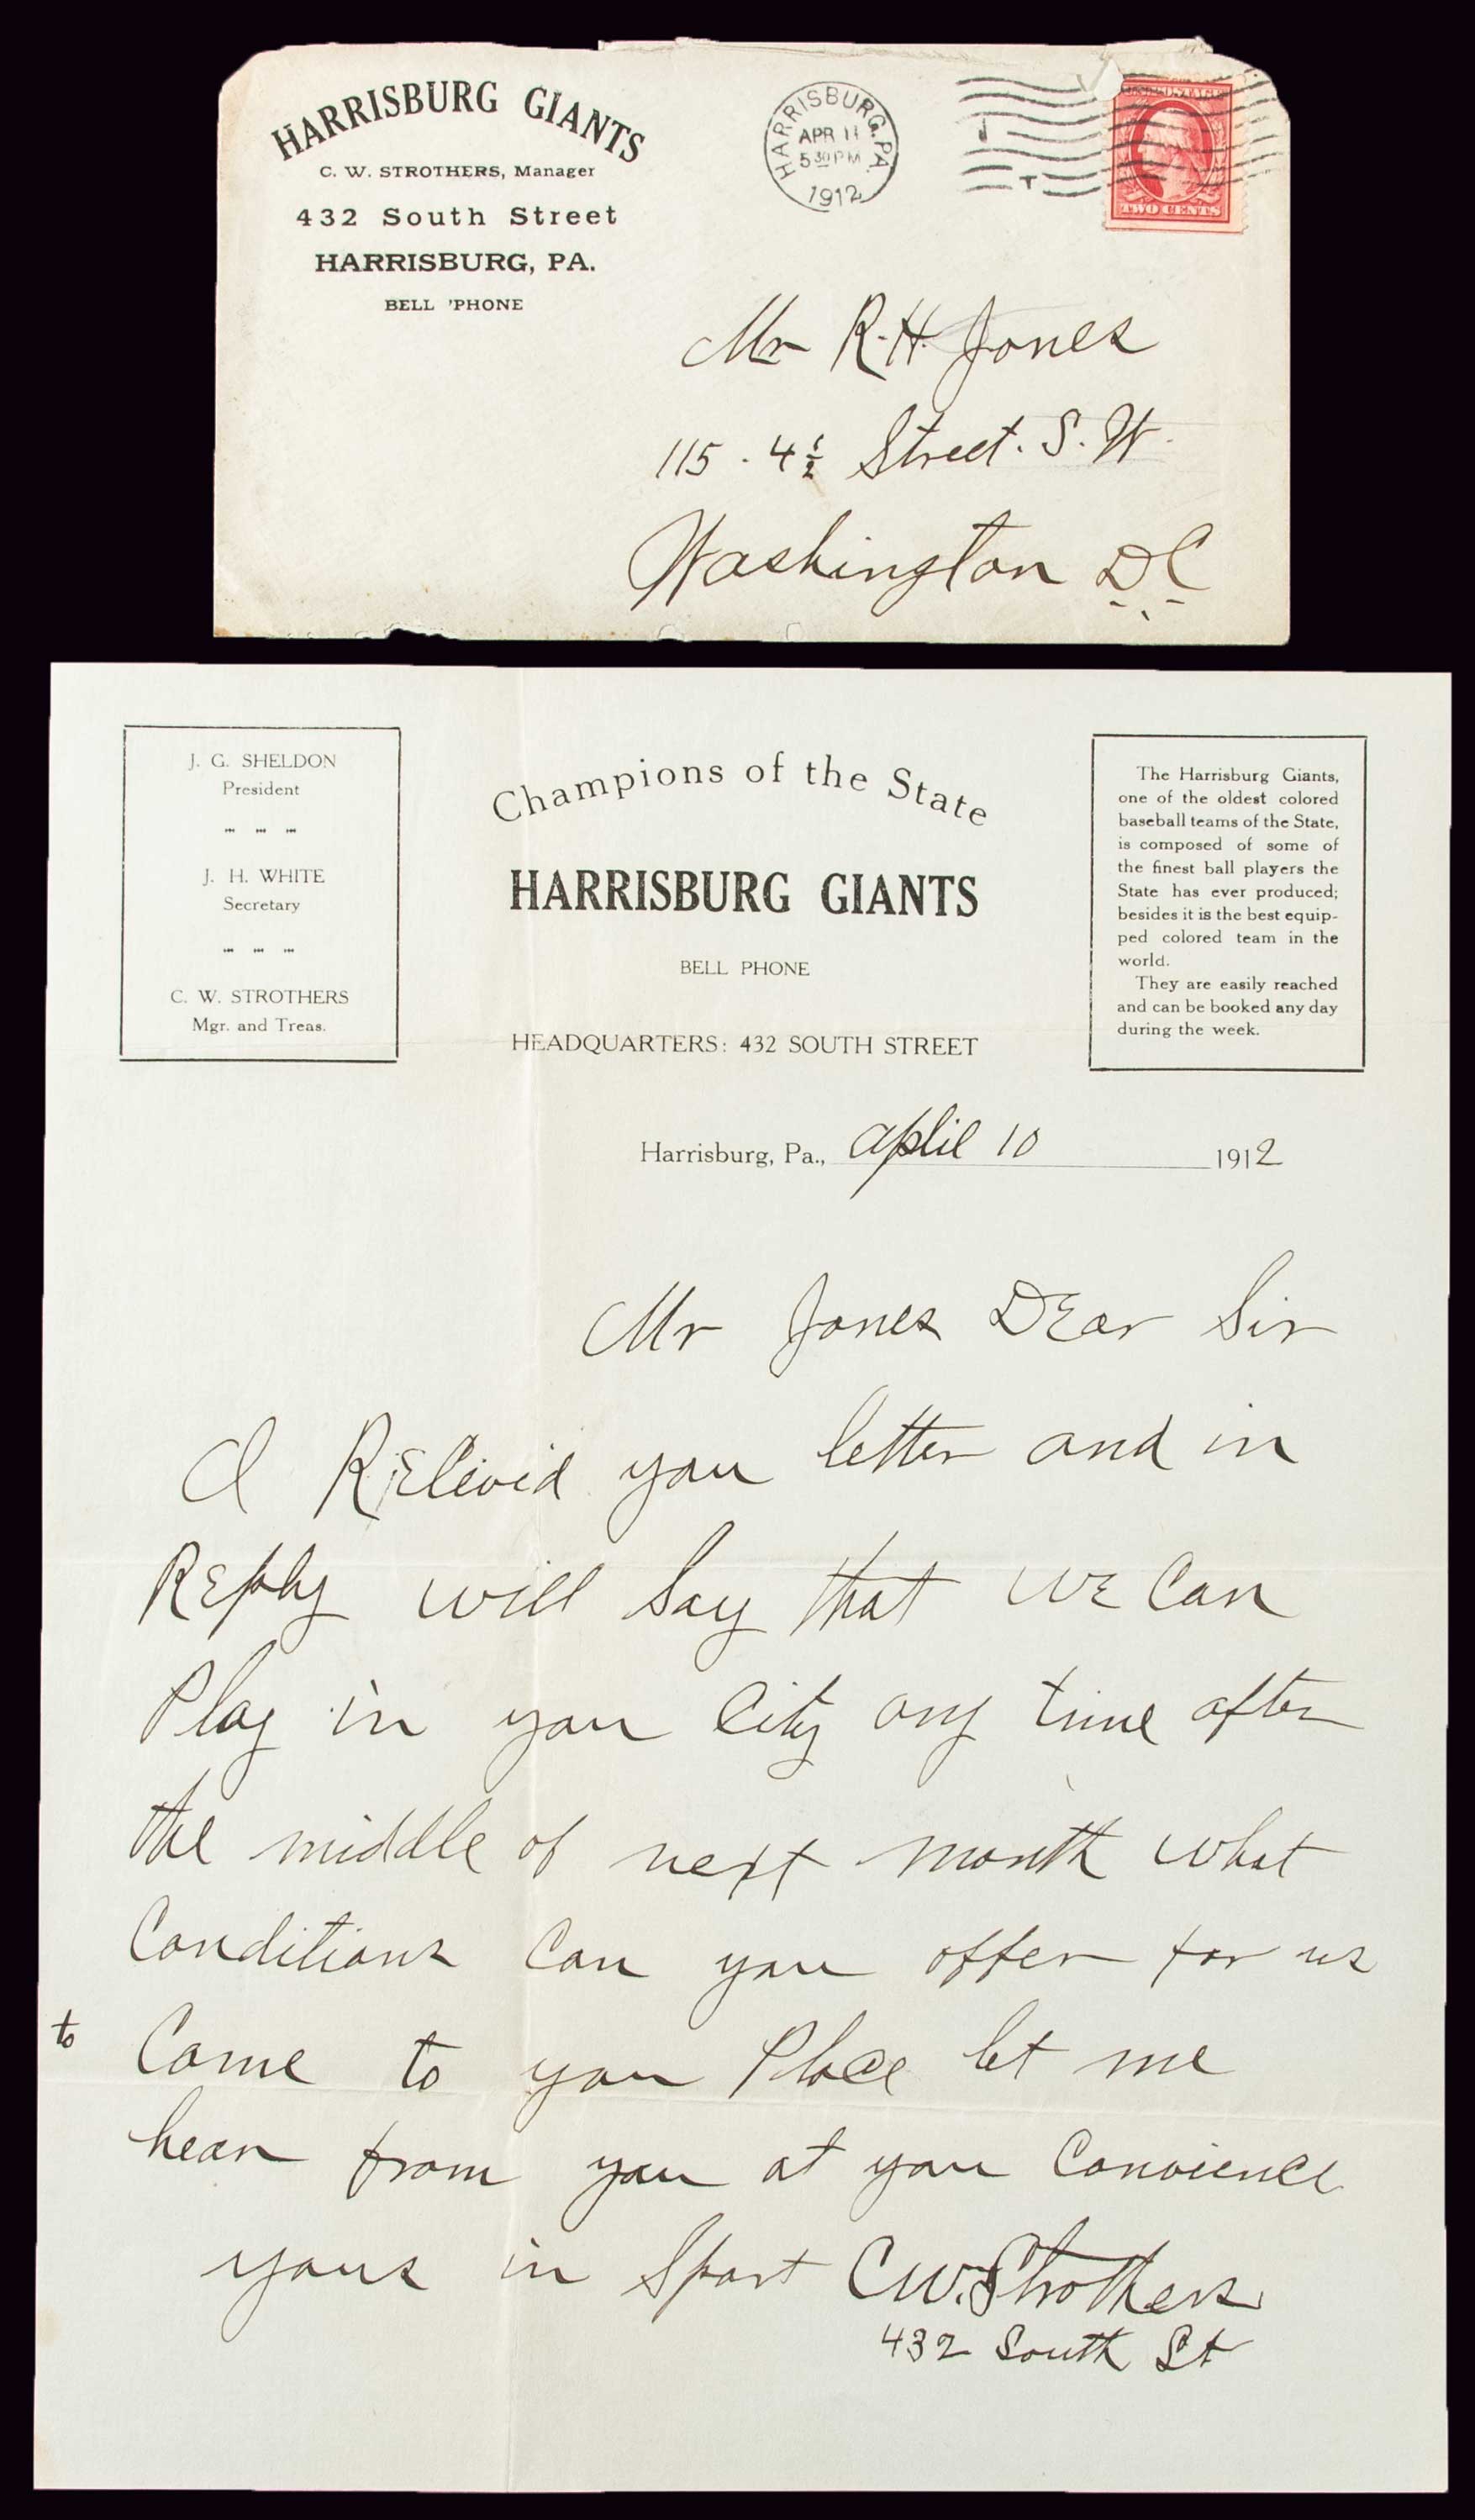 HARRISBURG GIANTS
C. W. STROTHERS, Manager
432 South Street
HARRISBURG, PA.
BELL 'PHONE
HARRISBURG, PA.
APR 11
5 30 PM
1912
U.S. POSTAGE
TWO CENTS
Mr R. H. Jones
115 . 4 1/2 Street. S. W.
Washington DC
J. G. SHELDON
President
J. H. WHITE
Secretary
C. W. STROTHERS
Mgr. and Treas.
Champions of the State
HARRISBURG GIANTS
BELL PHONE
HEADQUARTERS: 432 SOUTH STREET
The Harrisburg Giants,
one of the oldest colored
baseball teams of the State,
is composed of some of
the finest ball players the
State has ever produced;
besides it is the best equip-
ped colored team in the
world.
They are easily reached
and can be booked any day
during the week.
Harrisburg, Pa., aplil 10 1912
Mr Jones DEar Sir
I REcivid you letter and in
REply will Say that WE Can
Play in you City any time after
the middle of next month what
Conditions Can you offer for us
to Come to you Place let me
hear from you at you Convience
yours in Sport C W. Strothers
432 South St